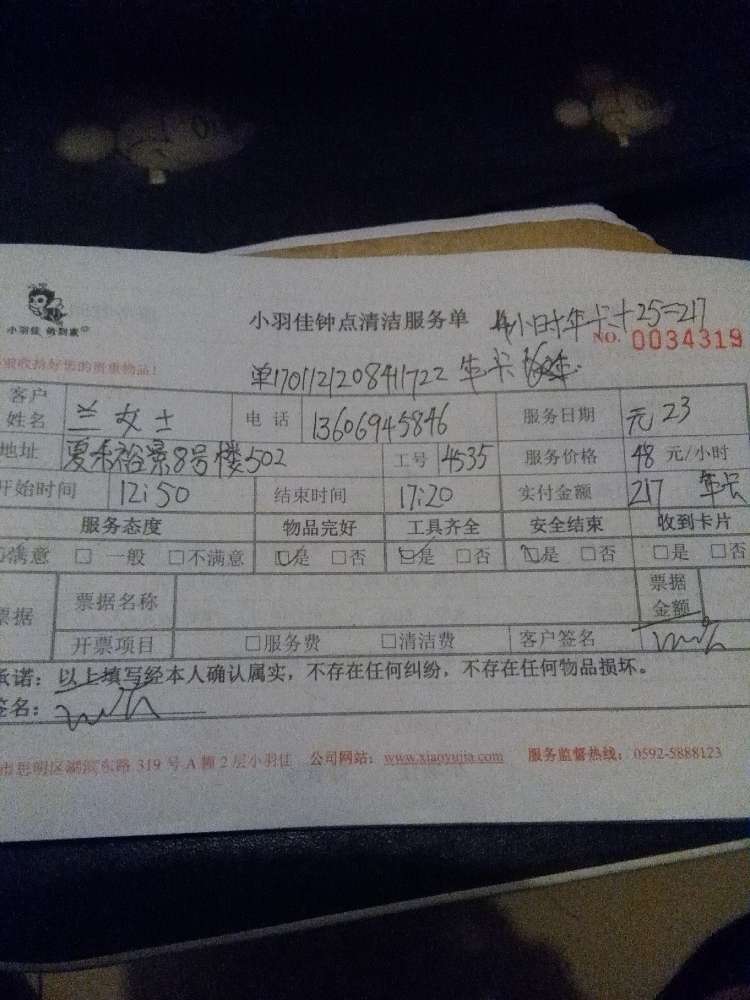 小羽佳 俏到家
小羽佳钟点清洁服务单 4小时年卡+25=217
NO. 0034319
收拾好您的贵重物品!
单1701121208411722 年卡
客户姓名 兰女士 电话 13606945846 服务日期 元23
地址 夏禾裕景8号楼502 工号 4535 服务价格 48 元/小时
开始时间 12:50 结束时间 17:20 实付金额 217 年卡
服务态度 物品完好 工具齐全 安全结束 收到卡片
满意 □ 一般 □不满意 ☑是 □否 ☑是 □否 ☑是 □否 □是 □否
票据 票据名称 票据金额
开票项目 □服务费 □清洁费 客户签名
承诺:以上填写经本人确认属实,不存在任何纠纷,不存在任何物品损坏。
签名:
市思明区湖滨东路 319 号 A 幢 2 层小羽佳 公司网站:www.xiaoyujia.com 服务监督热线:0592-5888123